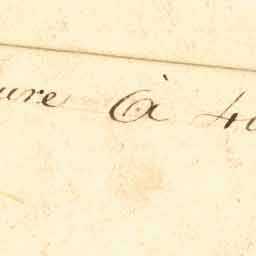 ure à 40